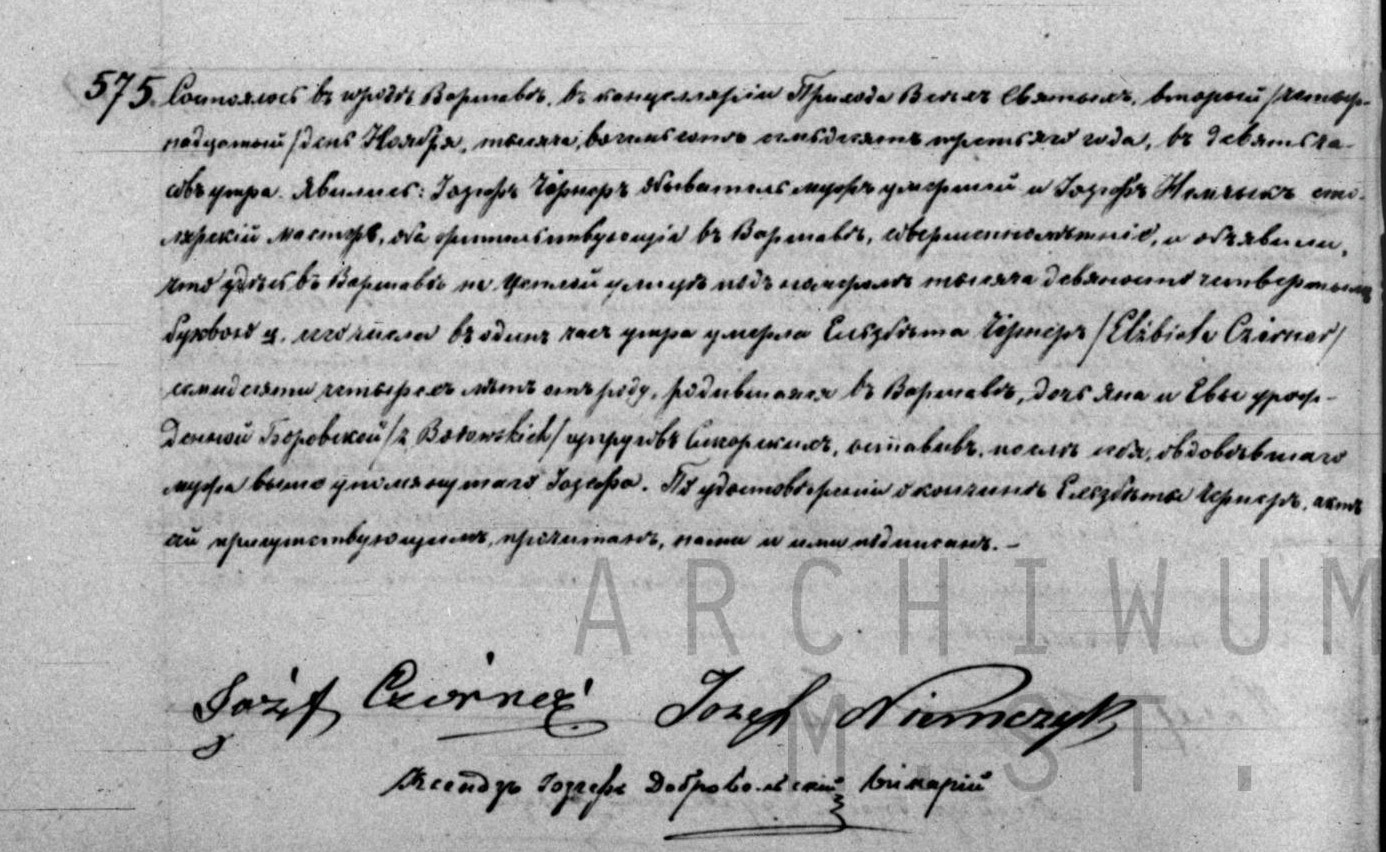 575. Состоялось въ городѣ Варшавѣ, въ канцелляріи Прихода Всѣхъ Святыхъ, второй /четыр-
надцатый/ день Ноября, тысяча восемьсотъ семьдесятъ третьяго года, въ девять ча-
совъ утра. Явились: Іозефъ Чёрнеръ обыватель мужъ умершей и Іозефъ Немчыкъ сто-
лярскій мастеръ, оба жительствующіе въ Варшавѣ, совершеннолѣтніе, и объявили,
что здѣсь въ Варшавѣ на Цеплой улицѣ подъ номеромъ тысяча девяносто четвертымъ
буквою ц. сего числа въ одинъ часъ утра умерла Ельзбѣта Чёрнеръ /Elżbieta Czörner/
семидесяти четырехъ лѣтъ отъ роду, родившаяся въ Варшавѣ, дочь Яна и Евы урож-
денной Боровской /z Borowskich/ супруговъ Сикорскихъ, оставивъ послѣ себя, овдовѣвшаго
мужа выше упомянутаго Іозефа. По удостовѣреніи о кончинѣ Ельзбѣты Чёрнеръ, актъ
сей присутствующимъ, прочитанъ, нами и ими подписанъ. –
Józef Czörner Jozef Niemczyk
Ксендзъ Іозефъ Добровольскій Викарій
ARCHIWUM
M.ST.